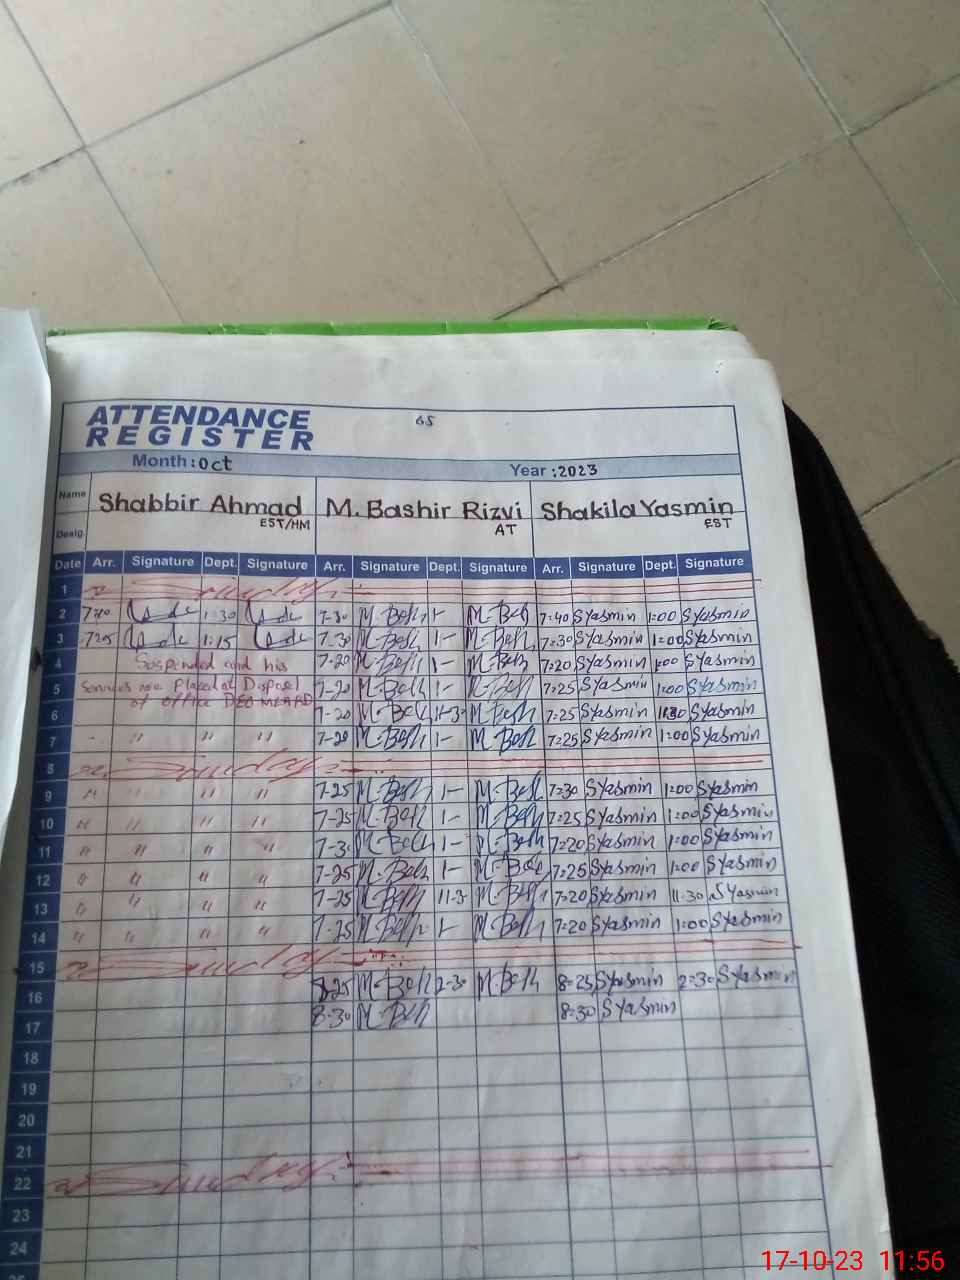 65
ATTENDANCE
REGISTER
Month: Oct Year: 2023
Name Shabbir Ahmad M. Bashir Rizvi Shakila Yasmin
Desig. EST/HM AT EST
Date Arr. Signature Dept. Signature Arr. Signature Dept. Signature Arr. Signature Dept. Signature
1 Sunday
2 7:30 M-Bash 1- M-Bash 7=40 SYasmin 1:00 SYasmin
3 1:15 7-30 M-Bash 1- M-Bash 7=30 SYasmin 1=00 SYasmin
4 Suspended and his 7-20 M-Bash 1- M-Bash 7=20 SYasmin 1:00 SYasmin
5 Services are Placed at Disposal 7-20 M-Bash 1- M-Bash 7:25 SYasmin 1:00 SYasmin
6 of office DEO 7-20 M-Bash 11-3 M-Bash 7:25 SYasmin SYasmin
7 - " " " 7-20 M-Bash 1- M-Bash 7:25 SYasmin 1:00 SYasmin
8 Sunday
9 " " " " 7-25 M-Bash 1- M-Bash 7=30 SYasmin 1:00 SYasmin
10 " " " " 7-25 M-Bash 1- M-Bash 7=25 SYasmin 1:00 SYasmin
11 " " " " 7-3 M-Bash 1- M-Bash 7=20 SYasmin 1:00 SYasmin
12 " " " " 7-25 M-Bash 1- M-Bash 7=25 SYasmin 1:00 SYasmin
13 " " " " 7-25 M-Bash 11-3 M-Bash 7=20 SYasmin 11-30 SYasmin
14 " " " " 7-25 M-Bash 1- M-Bash 7=20 SYasmin 1=00 SYasmin
15 Sunday
16 8-25 M-Bash 2-30 M-Bash 8=25 SYasmin 2=30 SYasmin
17 8-30 M-Bash 8=30 SYasmin
18
19
20
21
22 Sunday
23
24
17-10-23 11:56